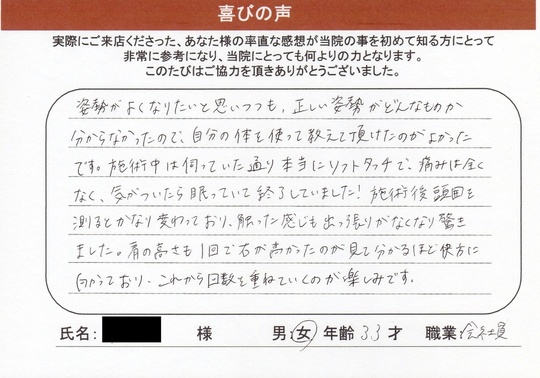 喜びの声
実際にご来店くださった、あなた様の率直な感想が当院の事を初めて知る方にとって
非常に参考になり、当院にとっても何よりの力となります。
このたびはご協力を頂きありがとうございました。
姿勢がよくなりたいと思いつつも、正しい姿勢がどんなものか
分からなかったので、自分の体を使って教えて頂けたのがよかった
です。施術中は伺っていた通り本当にソフトタッチで、痛みは全く
なく、気がついたら眠っていて終了していました!施術後頭囲を
測るとかなり変わっており、触った感じも出っ張りがなくなり驚き
ました。肩の高さも1回で右が高かったのが見て分かるほど
に向かっており、これから回数を重ねていくのが楽しみです。
氏名: 様 男・女 年齢 33 才 職業: 会社員